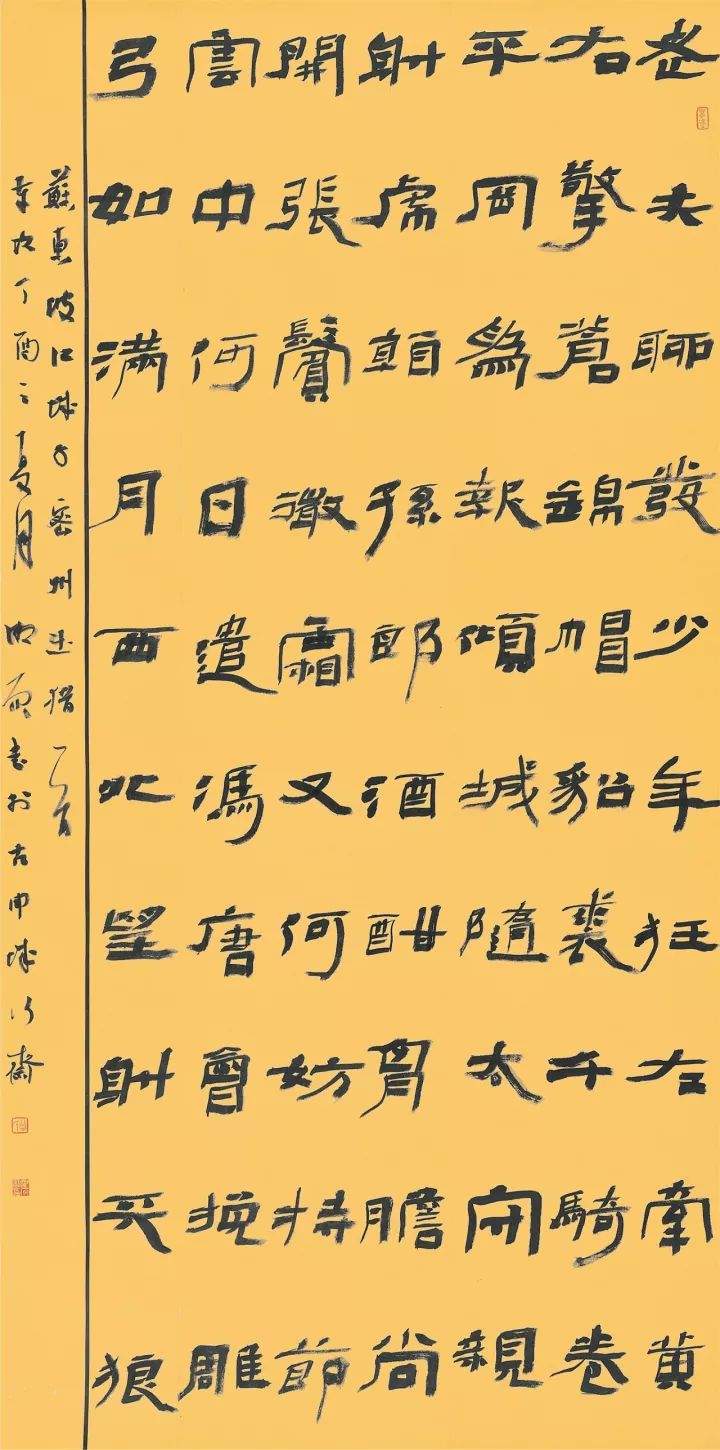 老夫聊發少年狂左牽黃
右擎蒼錦帽貂裘千騎卷
平岡爲報傾城隨太守親
射虎孫郎酒酣胸膽尚
開張鬢微霜又何妨持節
雲中何日遣馮唐會挽雕
弓如滿月西北望射天狼
蘇東坡江城子密州出獵一首
丁酉之夏月書於古申城行齋